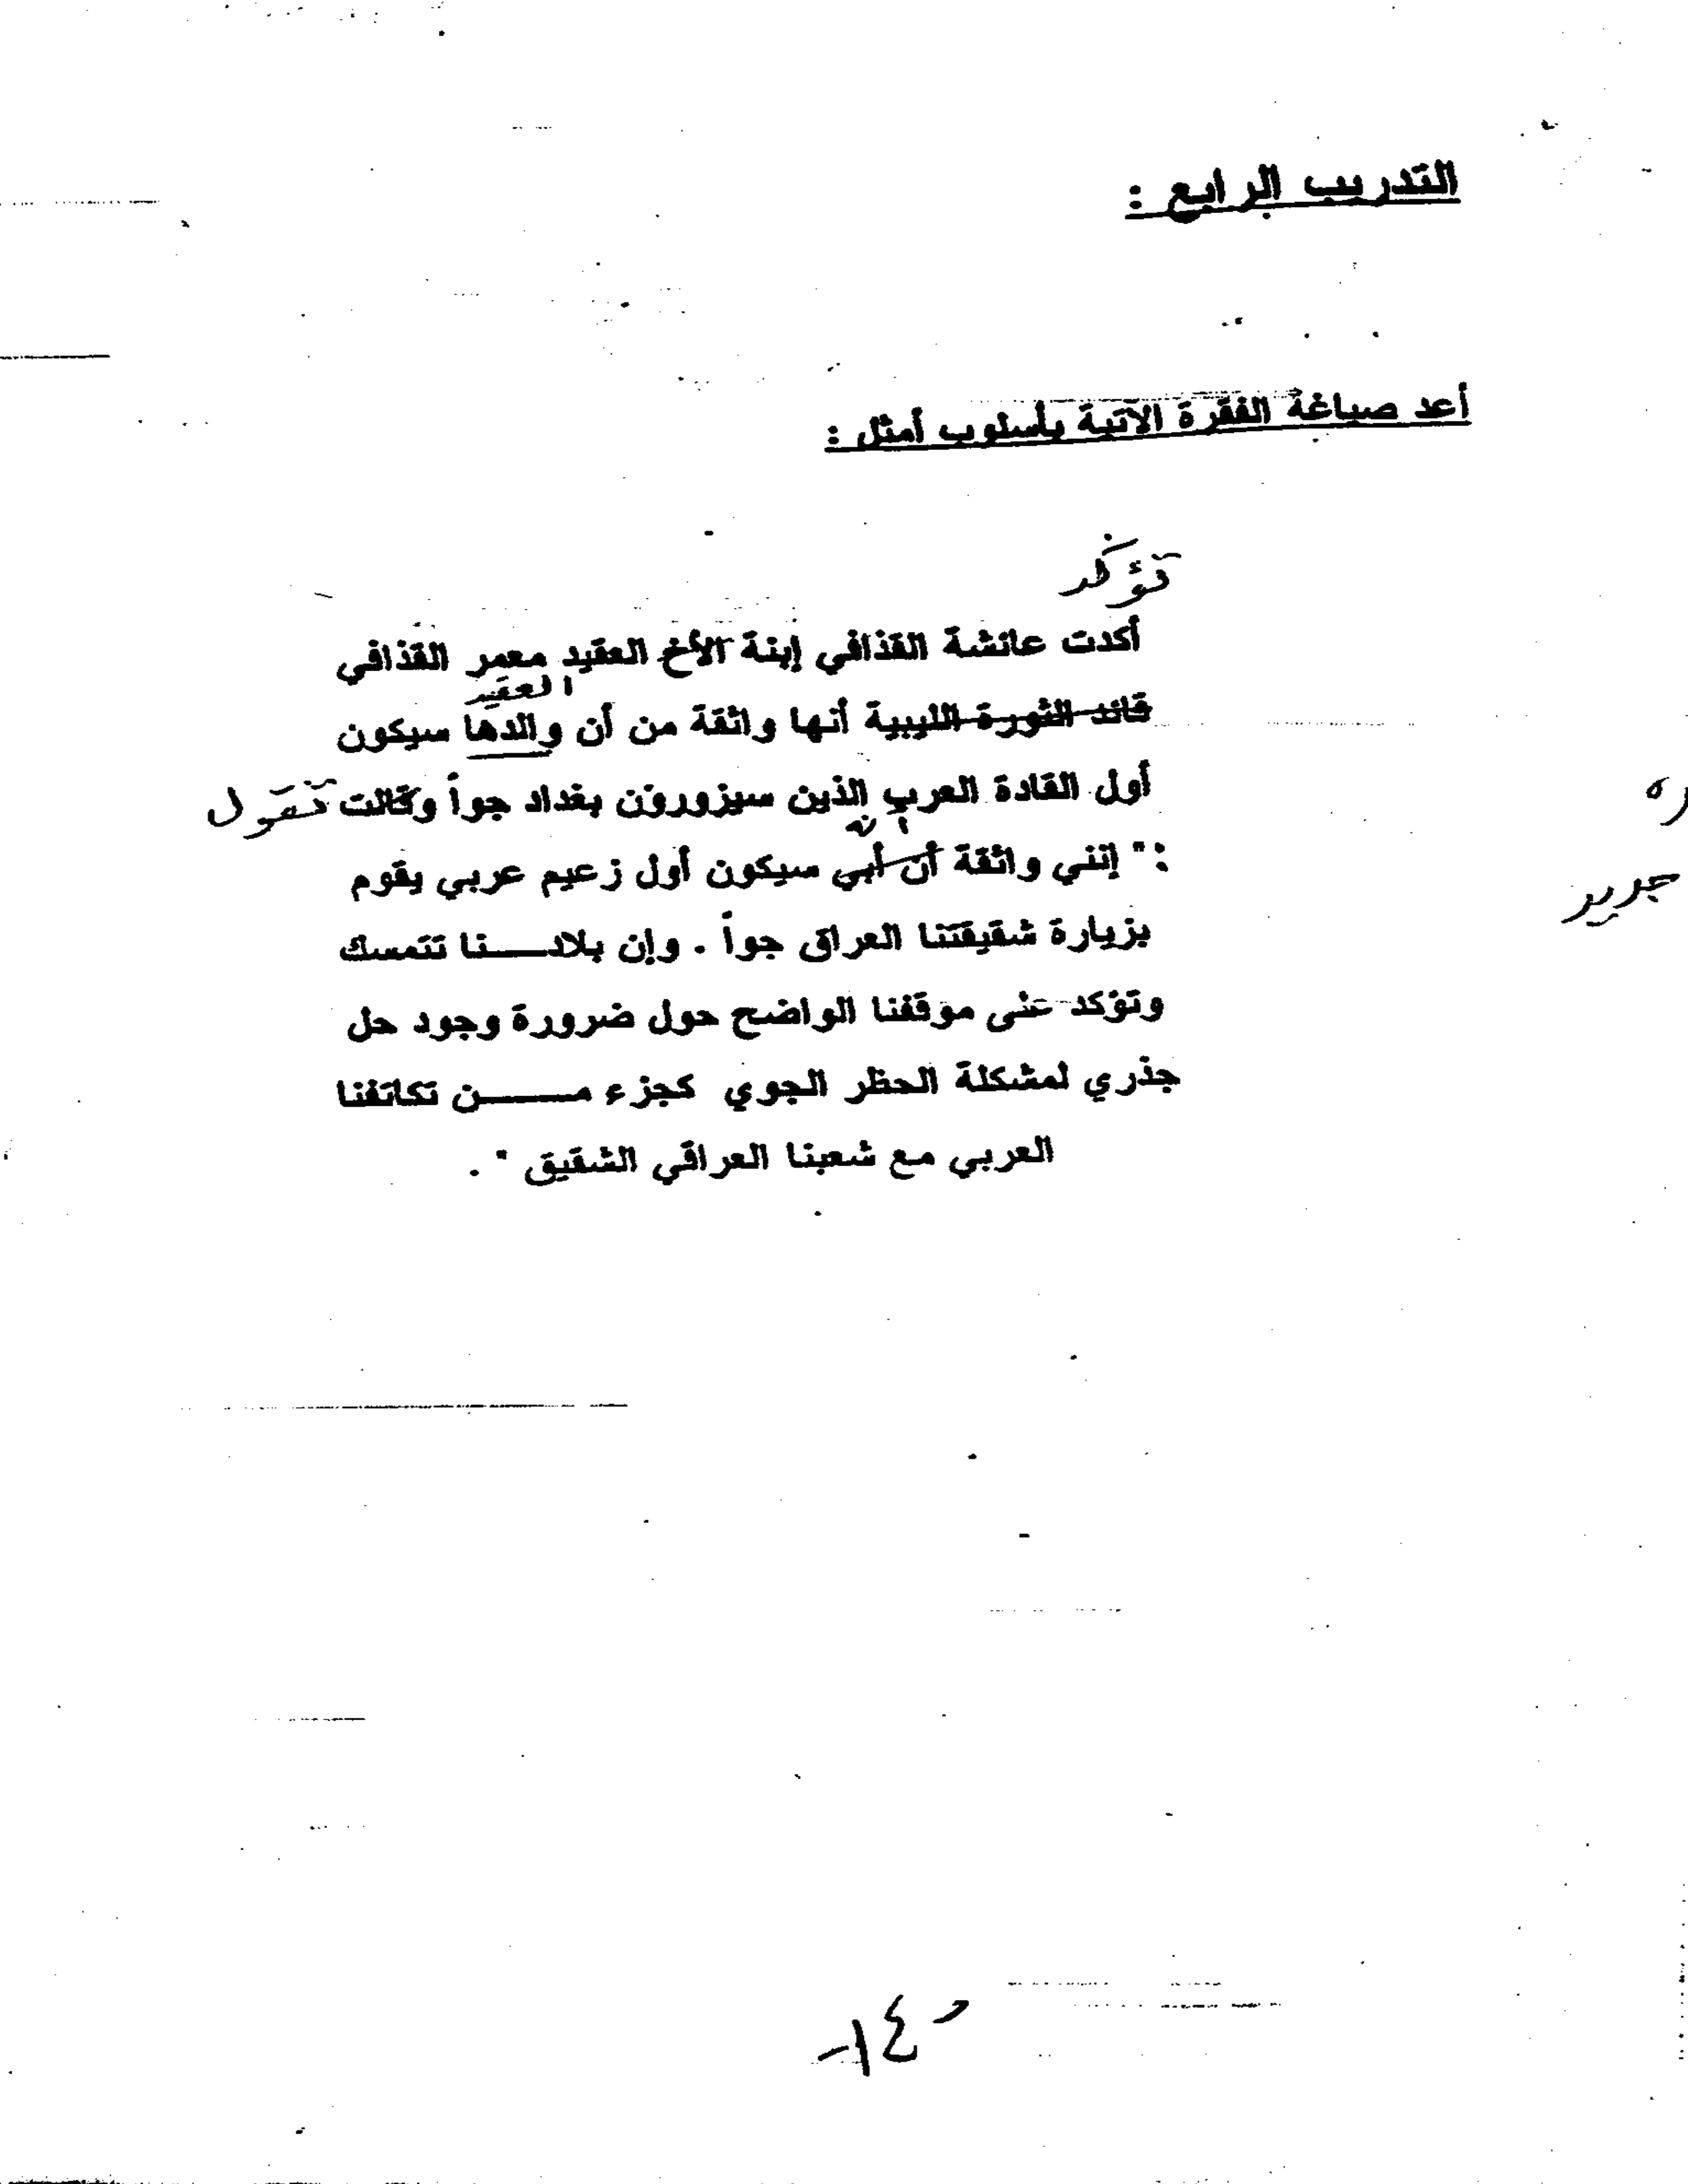 التدريب الرابع :
أعد صياغة الفقرة الآتية بأسلوب أمثل :
تؤكد
أكدت عائشة القذافي إبنة الأخ العقيد معمر القذافي
العقيد
قائد الثورة الليبية أنها واثقة من أن والدها سيكون
أول القادة العرب الذين سيزورون بغداد جواً وقالت تقول
انه
:" إنني واثقة أن أبي سيكون أول زعيم عربي يقوم
بزيارة شقيقتنا العراق جواً . وإن بلادـــنا تتمسك
جديد
وتؤكد على موقفنا الواضح حول ضرورة وجود حل
جذري لمشكلة الحظر الجوي كجزء مـــــن تكاتفنا
العربي مع شعبنا العراقي الشقيق " .
-١٤-